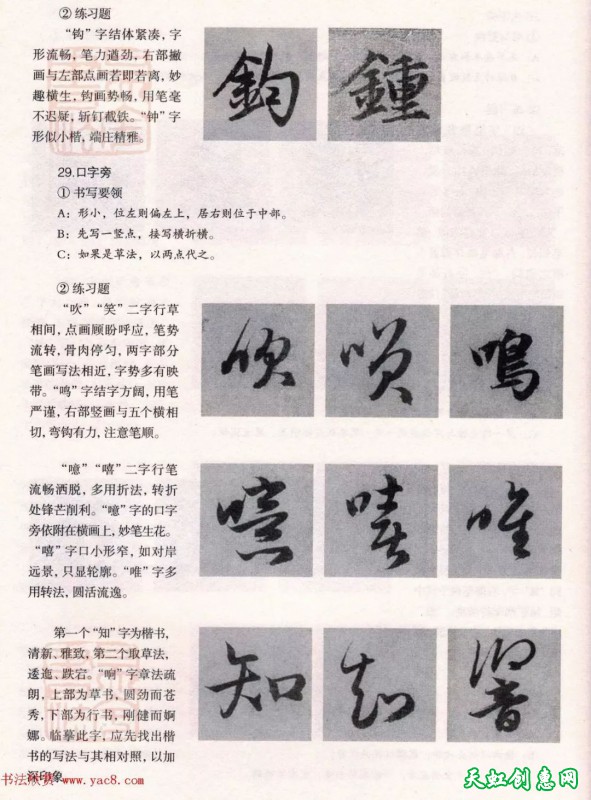 ②练习题
“钩”字结体紧凑，字
形流畅，笔力遒劲，右部撇
画与左部点画若即若离，妙
趣横生，钩画势畅，用笔毫
不迟疑，斩钉截铁。“钟”字
形似小楷，端庄精雅。
鈎 鍾
29.口字旁
①书写要领
A：形小，位左则偏左上，居右则位于中部。
B：先写一竖点，接写横折横。
C：如果是草法，以两点代之。
②练习题
“吹”“笑”二字行草
相间，点画顾盼呼应，笔势
流转，骨肉停匀，两字部分
笔画写法相近，字势多有映
带。“鸣”字结字方阔，用笔
严谨，右部竖画与五个横相
切，弯钩有力，注意笔顺。
吹 鳴
“噫”“嘻”二字行笔
流畅洒脱，多用折法，转折
处锋芒削利。“噫”字的口字
旁依附在横画上，妙笔生花。
“嘻”字口小形窄，如对岸
远景，只显轮廓。“唯”字多
用转法，圆活流逸。
噫 嘻 唯
第一个“知”字为楷书，
清新、雅致，第二个取草法，
逶迤、跌宕。“响”字章法疏
朗，上部为草书，圆劲而苍
秀，下部为行书，刚健而婀
娜。临摹此字，应先找出楷
书的写法与其相对照，以加
深印象。
知 知 響
书法欣赏 www.yac8.com
天虹创惠网